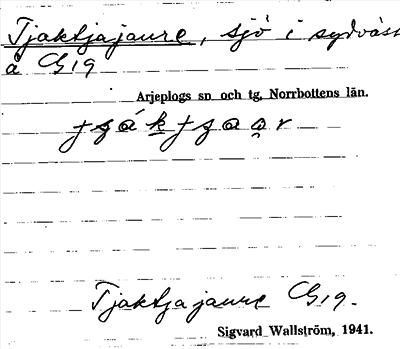 Tjaktjajaure, sjö i sydväst
å G19
Arjeplogs sn och tg, Norrbottens län.
Tjaktjajaure G19.
Sigvard Wallström, 1941.